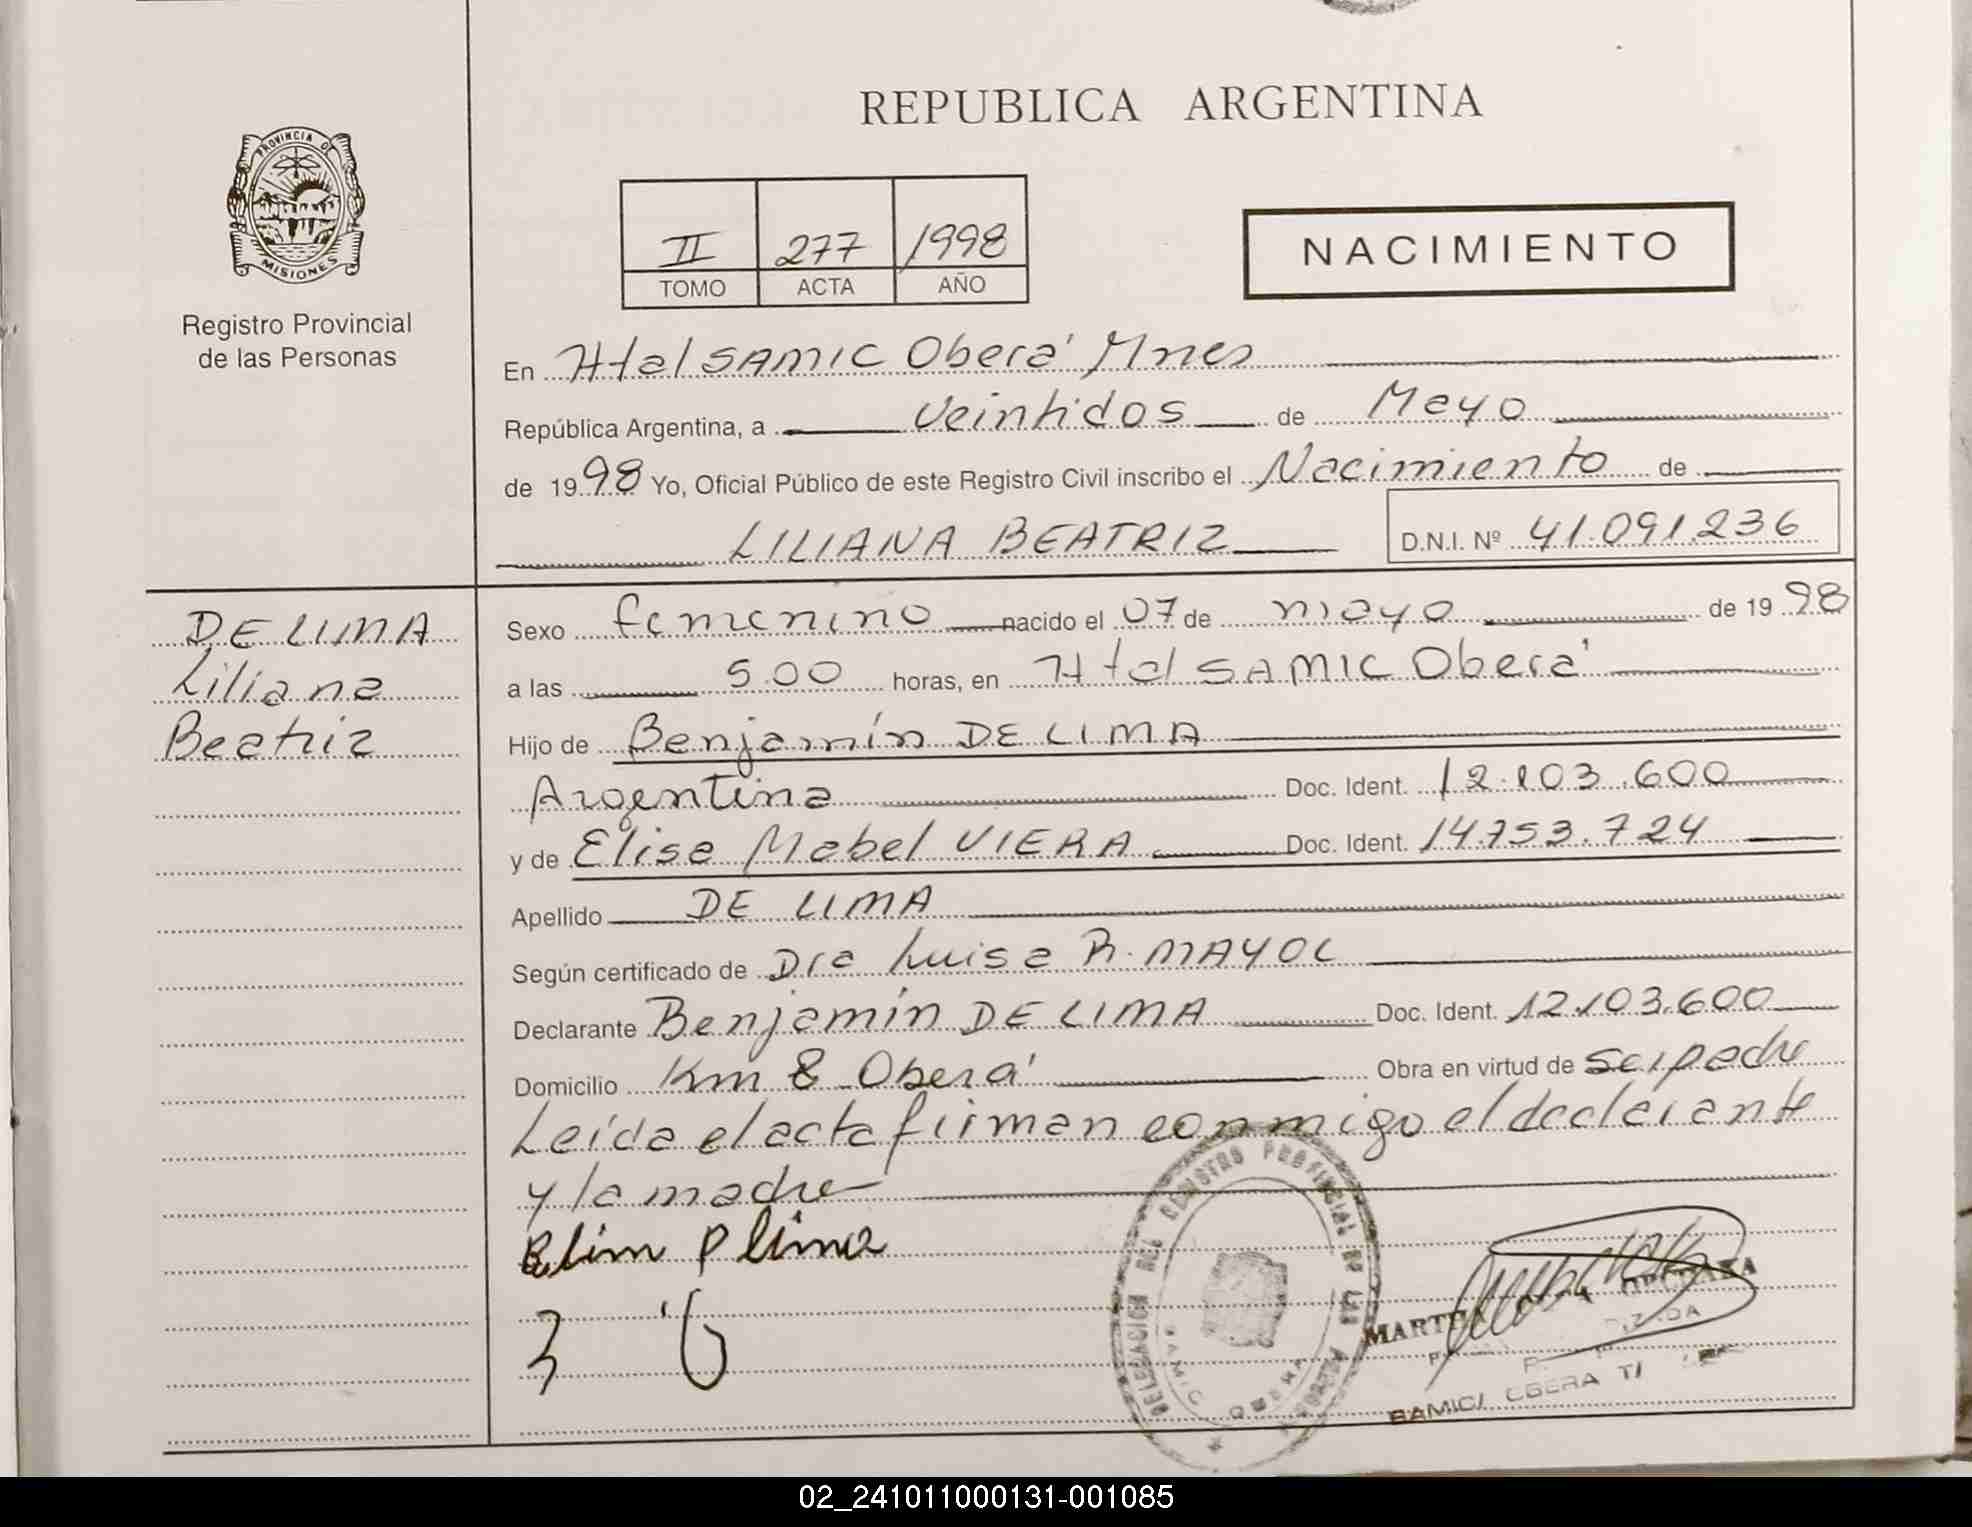 REPUBLICA ARGENTINA
PROVINCIA DE
MISIONES
Registro Provincial
de las Personas
II 277 1998
TOMO ACTA AÑO
NACIMIENTO
En Htal SAMIC Oberá Mnes
República Argentina, a veintidos de Mayo
de 1998 Yo, Oficial Público de este Registro Civil inscribo el Nacimiento de
LILIANA BEATRIZ D.N.I. Nº 41.091.236
DE LIMA
Liliana
Beatriz
Sexo femenino nacido el 07 de mayo de 1998
a las 5.00 horas, en Htal SAMIC Oberá
Hijo de Benjamín DE LIMA
Argentina Doc. Ident. 12.103.600
y de Elisa Mabel VIERA Doc. Ident. 14.753.724
Apellido DE LIMA
Según certificado de Dra Luisa R. MAYOL
Declarante Benjamín DE LIMA Doc. Ident. 12.103.600
Domicilio Km 8 Oberá Obra en virtud de ser padre
Leída el acta firman conmigo el declarante
y la madre
DELEGACION DEL REGISTRO PROVINCIAL DE LAS
SAMIC OBERA
MARTHA
SAMIC OBERA
02_241011000131-001085